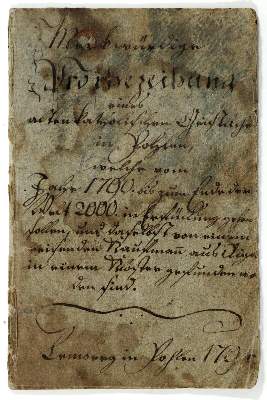 Merkwürdige
Profezeihung
eines
alten katholischen Geistliche
in Pohlen,
welche vom
Jahre 1760. bis zum Ende der
Welt 2000. in Erfüllung gehen
sollen, und daselbst von einem
reisenden Kaufmann aus
in einem Kloster gefunden wor
den sind.
Lemberg in Pohlen 179